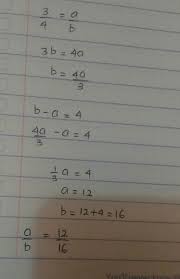 3/4 = a/b
3b = 4a
b = 4a/3
b - a = 4
4a/3 - a = 4
1/3 a = 4
a = 12
b = 12+4 = 16
a/b = 12/16